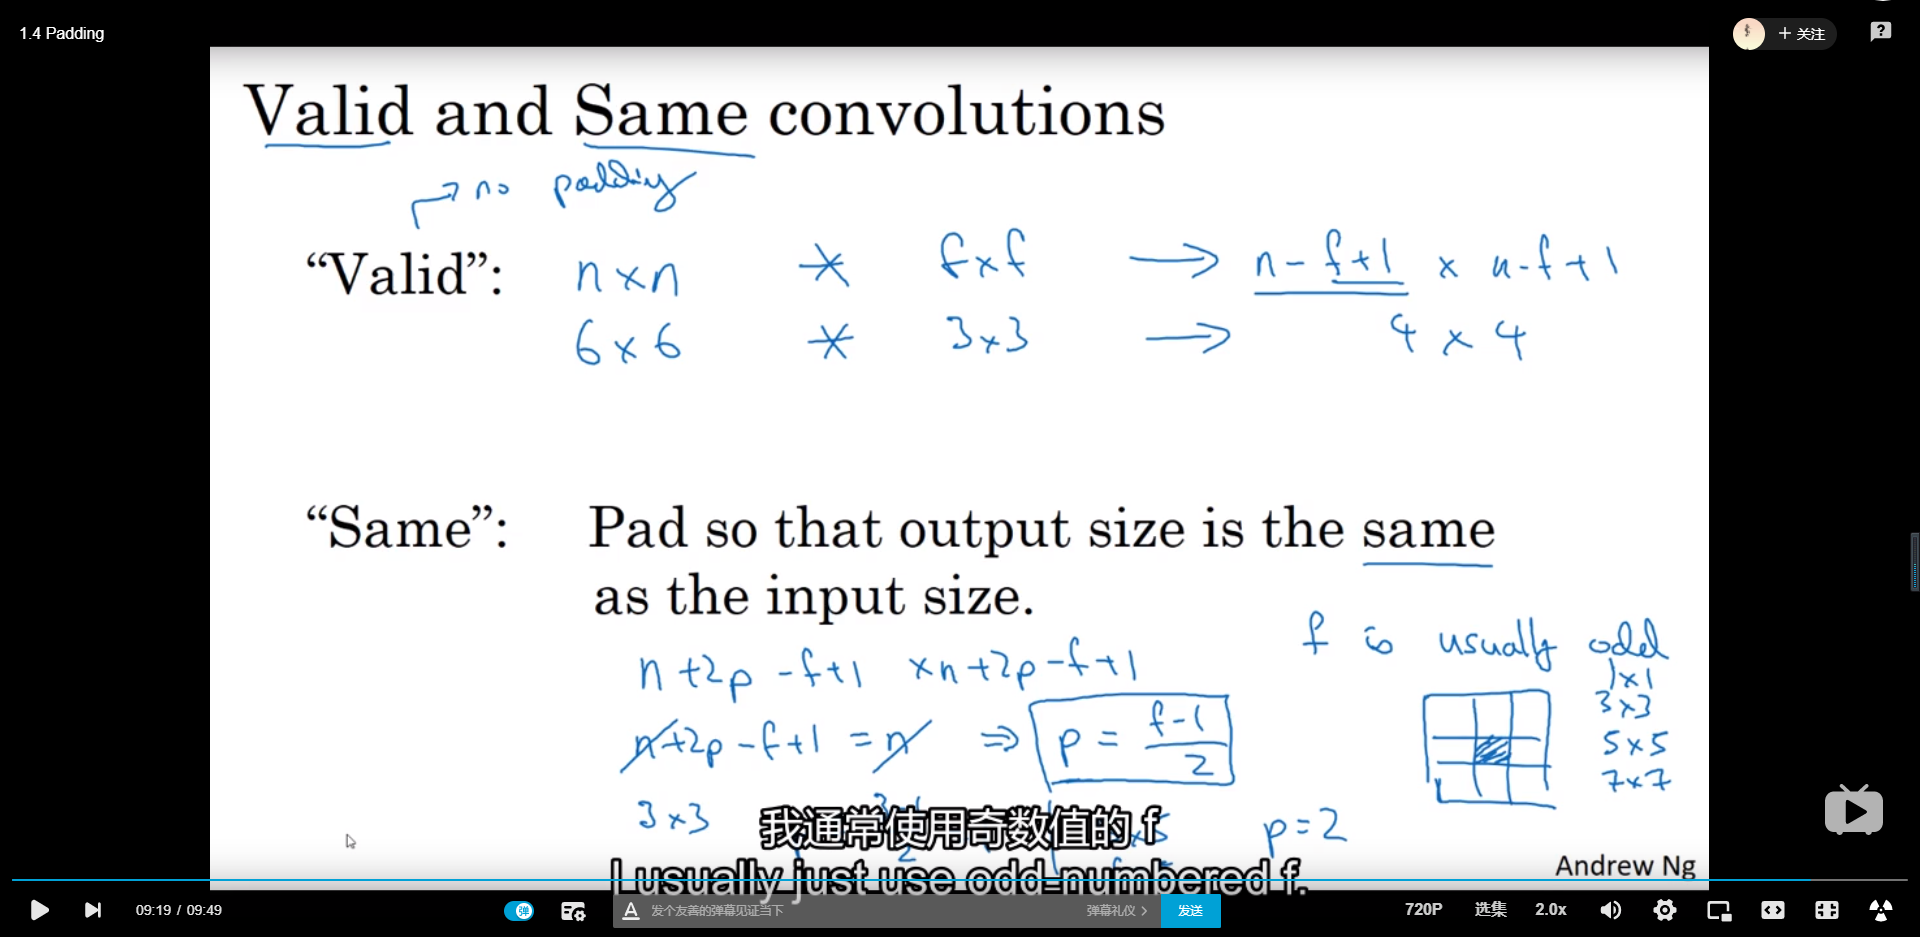 1.4 Padding
+ 关注
Valid and Same convolutions
→ no padding
“Valid”: n×n * f×f → n-f+1 × n-f+1
6×6 * 3×3 → 4×4
“Same”: Pad so that output size is the same
as the input size.
n+2p-f+1 ×n+2p-f+1
n+2p-f+1 = n ⇒ p = f-1
2
f is usually odd
1×1
3×3
5×5
7×7
3×3
p=2
我通常使用奇数值的 f
I usually just use odd-numbered f.
Andrew Ng
09:19 / 09:49
弹
A 发个友善的弹幕见证当下
弹幕礼仪 >
发送
720P
选集
2.0x